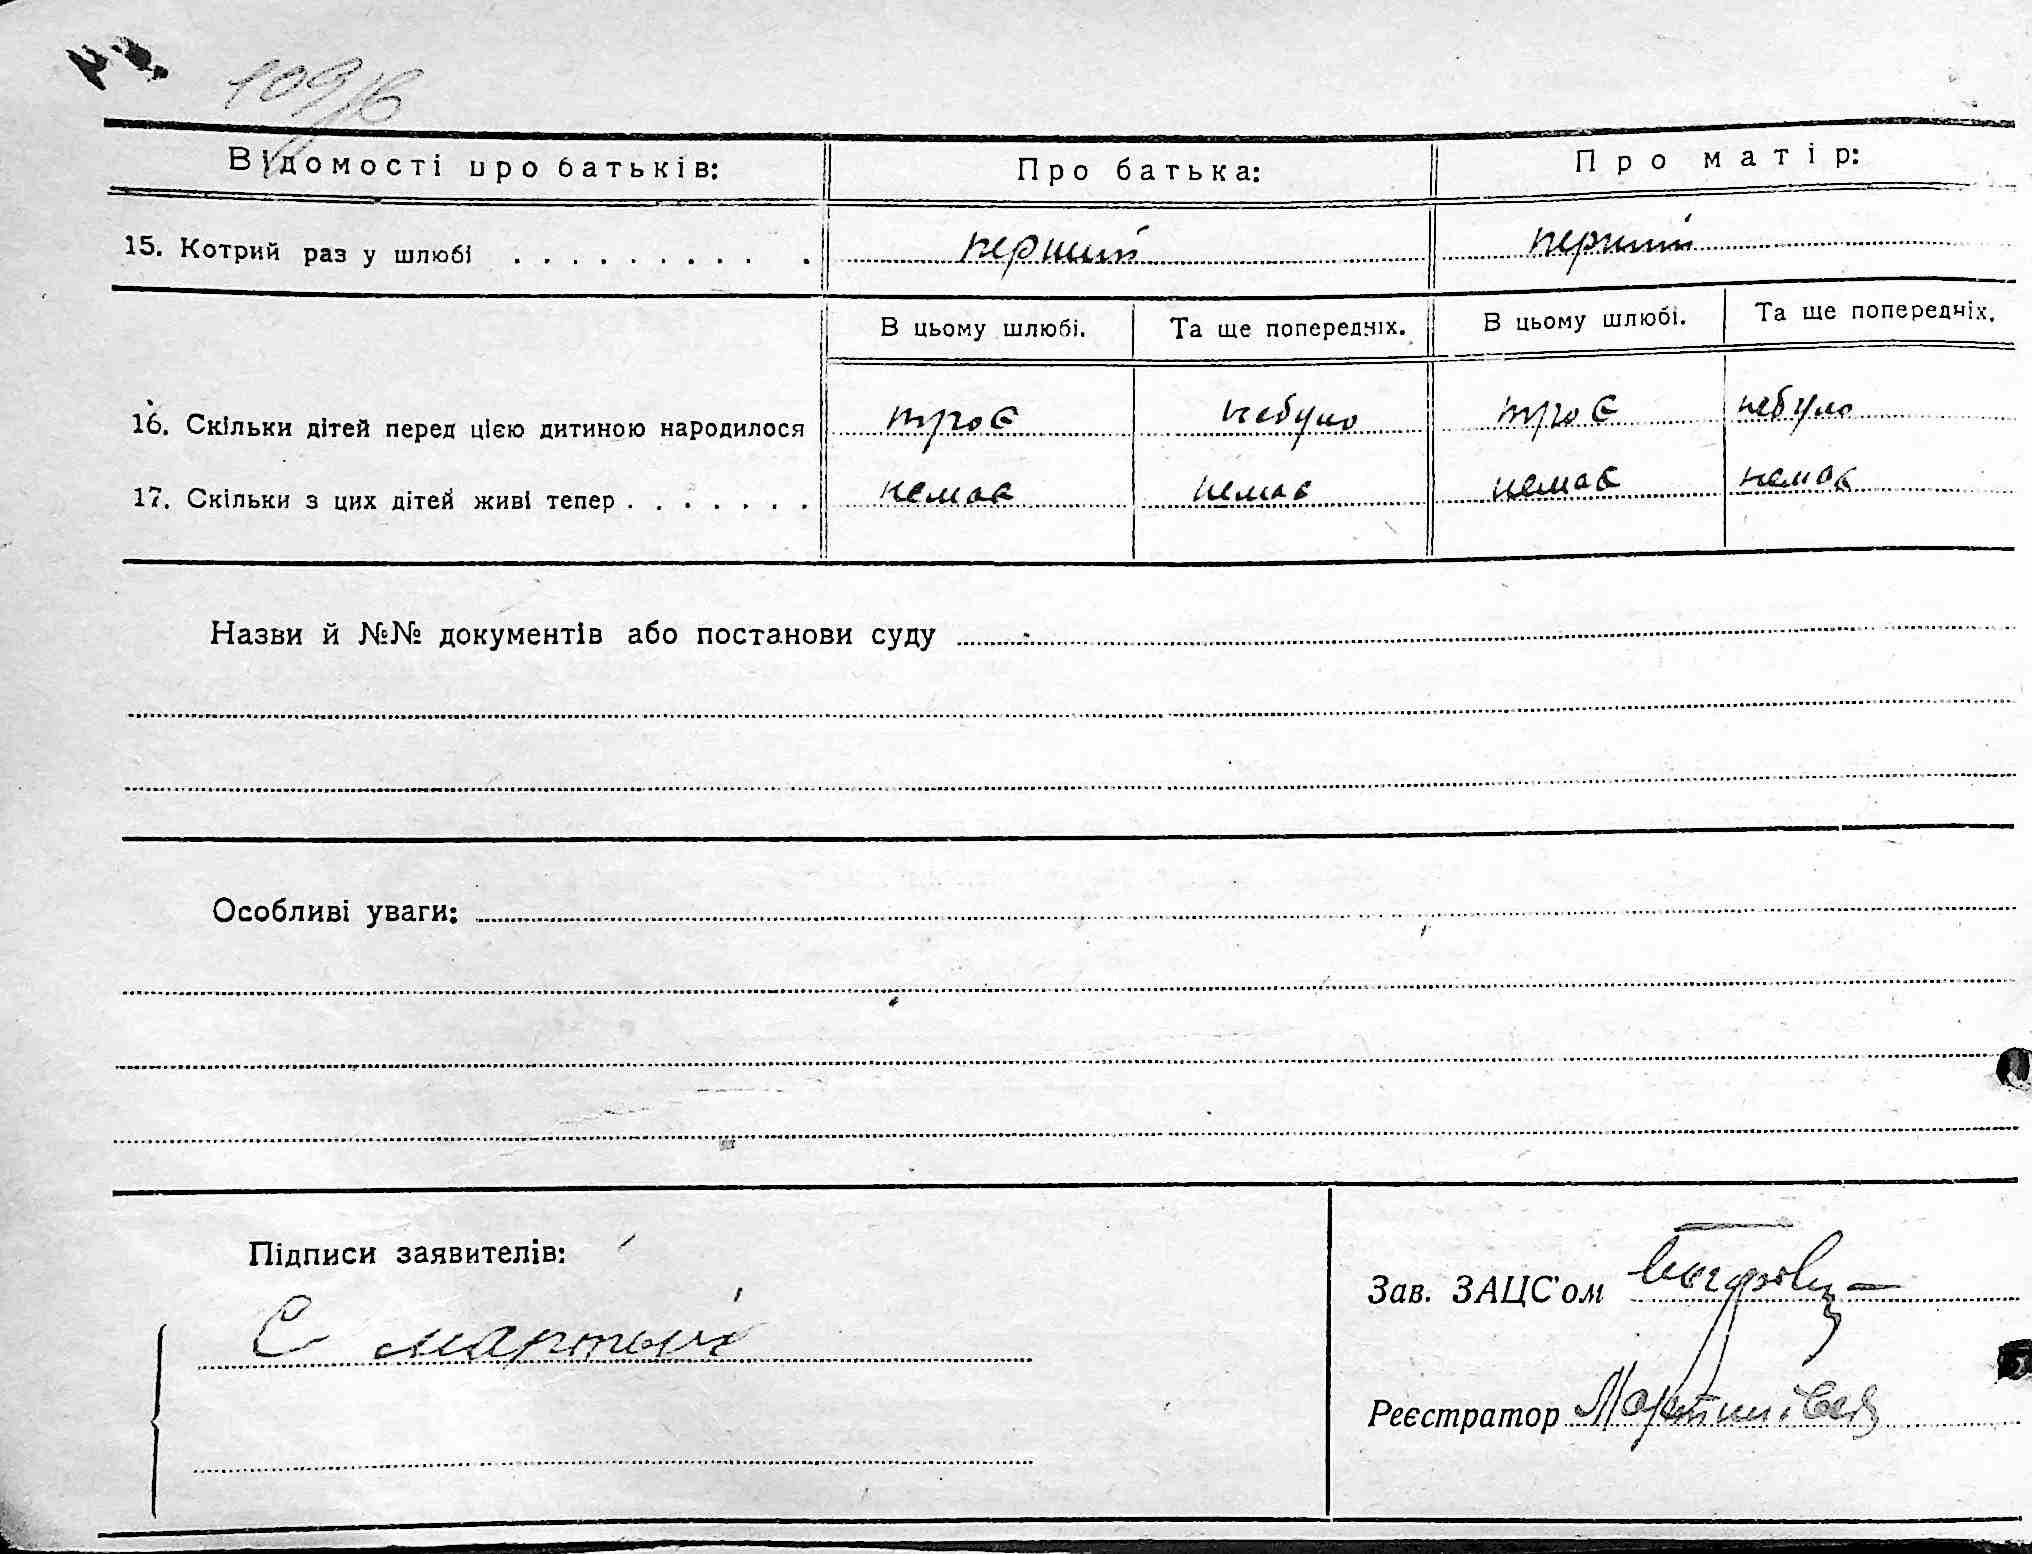 109/6
Відомості про батьків: Про батька: Про матір:
15. Котрий раз у шлюбі . . . . . . . . . . перший перший
В цьому шлюбі. Та ще попередніх. В цьому шлюбі. Та ще попередніх.
16. Скільки дітей перед цією дитиною народилося троє небуло троє небуло
17. Скільки з цих дітей живі тепер . . . . . . . немає немає немає немає
Назви й №№ документів або постанови суду
Особливі уваги:
Підписи заявителів:
Зав. ЗАЦС'ом
С
Реєстратор